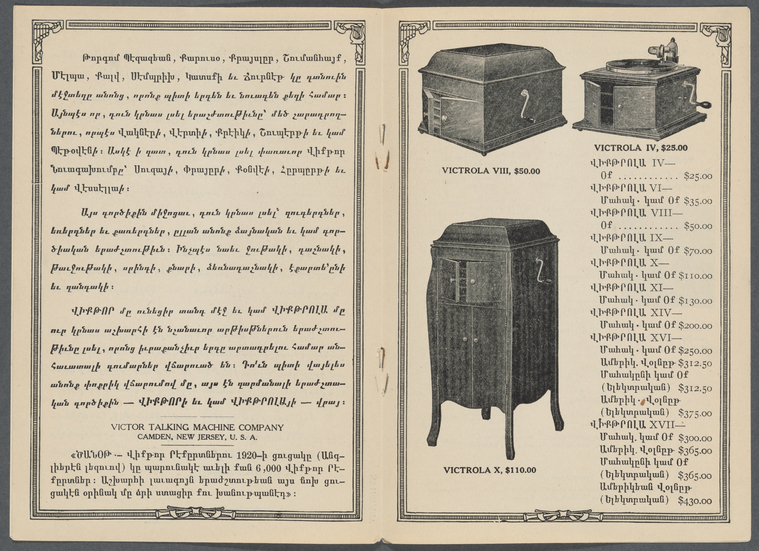 Թորգոմ Պէզազեան, Քարուսօ, Քրայսլըր, Շումանհայք,
Մէլպա, Քալվ, Սէմպրիխ, Կատսքի եւ Ճուրնէթ կը գտնուին
մէջտեղը անոնց, որոնք պիտի երգեն եւ նուագեն քեզի համար։
Այնպէս որ, դուն կրնաս լսել երաժշտութիւնը՝ մեծ չարադրող-
ներու, որպէս Վակնէրի, Վէրտիի, Քրէիկի, Շուպէրթի եւ կամ
Պէթօվէնի։ Ասկէ ի զատ, դուն կրնաս լսել փառաւոր Վիքթոր
Նուագախումբը՝ Սուզայի, Փրայըրի, Քօնվէի, Հըրպըրթի եւ
կամ Վէսսէլլայի։
Այս գործիքին միջոցաւ, դուն կրնաս լսել՝ զուգերգներ,
եռերգներ եւ քառերգներ, ըլլան անոնք ձայնական եւ կամ գոր-
ծիական երաժշտութիւն։ Ինչպէս նաեւ ջութակի, դաշնակի,
թաւջութակի, սրինգի, քնարի, ձեռնադաշնակի, էքարտէ՛ոնի
եւ զանգակի։
ՎԻՔԹՈՐ մը ունեցիր տանդ մէջ եւ կամ ՎԻՔԹՐՈԼԱ մը
ուր կրնաս աշխարհի էն նշանաւոր արթիսթներուն երաժշտու-
թիւնը լսել, որոնց իւրաքանչիւր երգը արտադրելու համար ան-
հաւատալի գումարներ վճարուած են։ Դո՛ւն պիտի վայելես
անոնք փոքրիկ վճարումով մը, այս էն զարմանալի երաժշտա-
կան գործիքին — ՎԻՔԹՈՐի եւ կամ ՎԻՔԹՐՈԼԱյի — վրայ։
VICTOR TALKING MACHINE COMPANY
CAMDEN, NEW JERSEY, U. S. A.
«ԾԱՆՕԹ.— Վիքթոր Րէքըրտներու 1920-ի ցուցակը (Անգ-
լիերէն լեզուով) կը պարունակէ աւելի քան 6,000 Վիքթոր Րէ-
քըրտներ։ Աշխարհի լաւագոյն երաժշտութեան այս նոխ ցու-
ցակէն օրինակ մը ձրի ստացիր քու խանութպանէդ»։
VICTROLA VIII, $50.00
VICTROLA IV, $25.00
VICTROLA X, $110.00
ՎԻՔԹՐՈԼԱ IV—
Օք ............ $25.00
ՎԻՔԹՐՈԼԱ VI—
Մահակ. կամ Օք $35.00
ՎԻՔԹՐՈԼԱ VIII—
Օք ............ $50.00
ՎԻՔԹՐՈԼԱ IX—
Մահակ. կամ Օք $70.00
ՎԻՔԹՐՈԼԱ X—
Մահակ. կամ Օք $110.00
ՎԻՔԹՐՈԼԱ XI—
Մահակ. կամ Օք $130.00
ՎԻՔԹՐՈԼԱ XIV—
Մահակ. կամ Օք $200.00
ՎԻՔԹՐՈԼԱ XVI—
Մահակ. կամ Օք $250.00
Ամերիկ. Վօլնըթ $312.50
Մահակընի կամ Օք
(Ելեկտրական) $312.50
Ամերիկ. Վօլնըթ
(Ելեկտրական) $375.00
ՎԻՔԹՐՈԼԱ XVII—
Մահակ. կամ Օք $300.00
Ամերիկ. Վօլնըթ $365.00
Մահակընի կամ Օք
(Ելեկտրական) $365.00
Ամերիկեան Վօլնըթ
(Ելեկտրական) $430.00